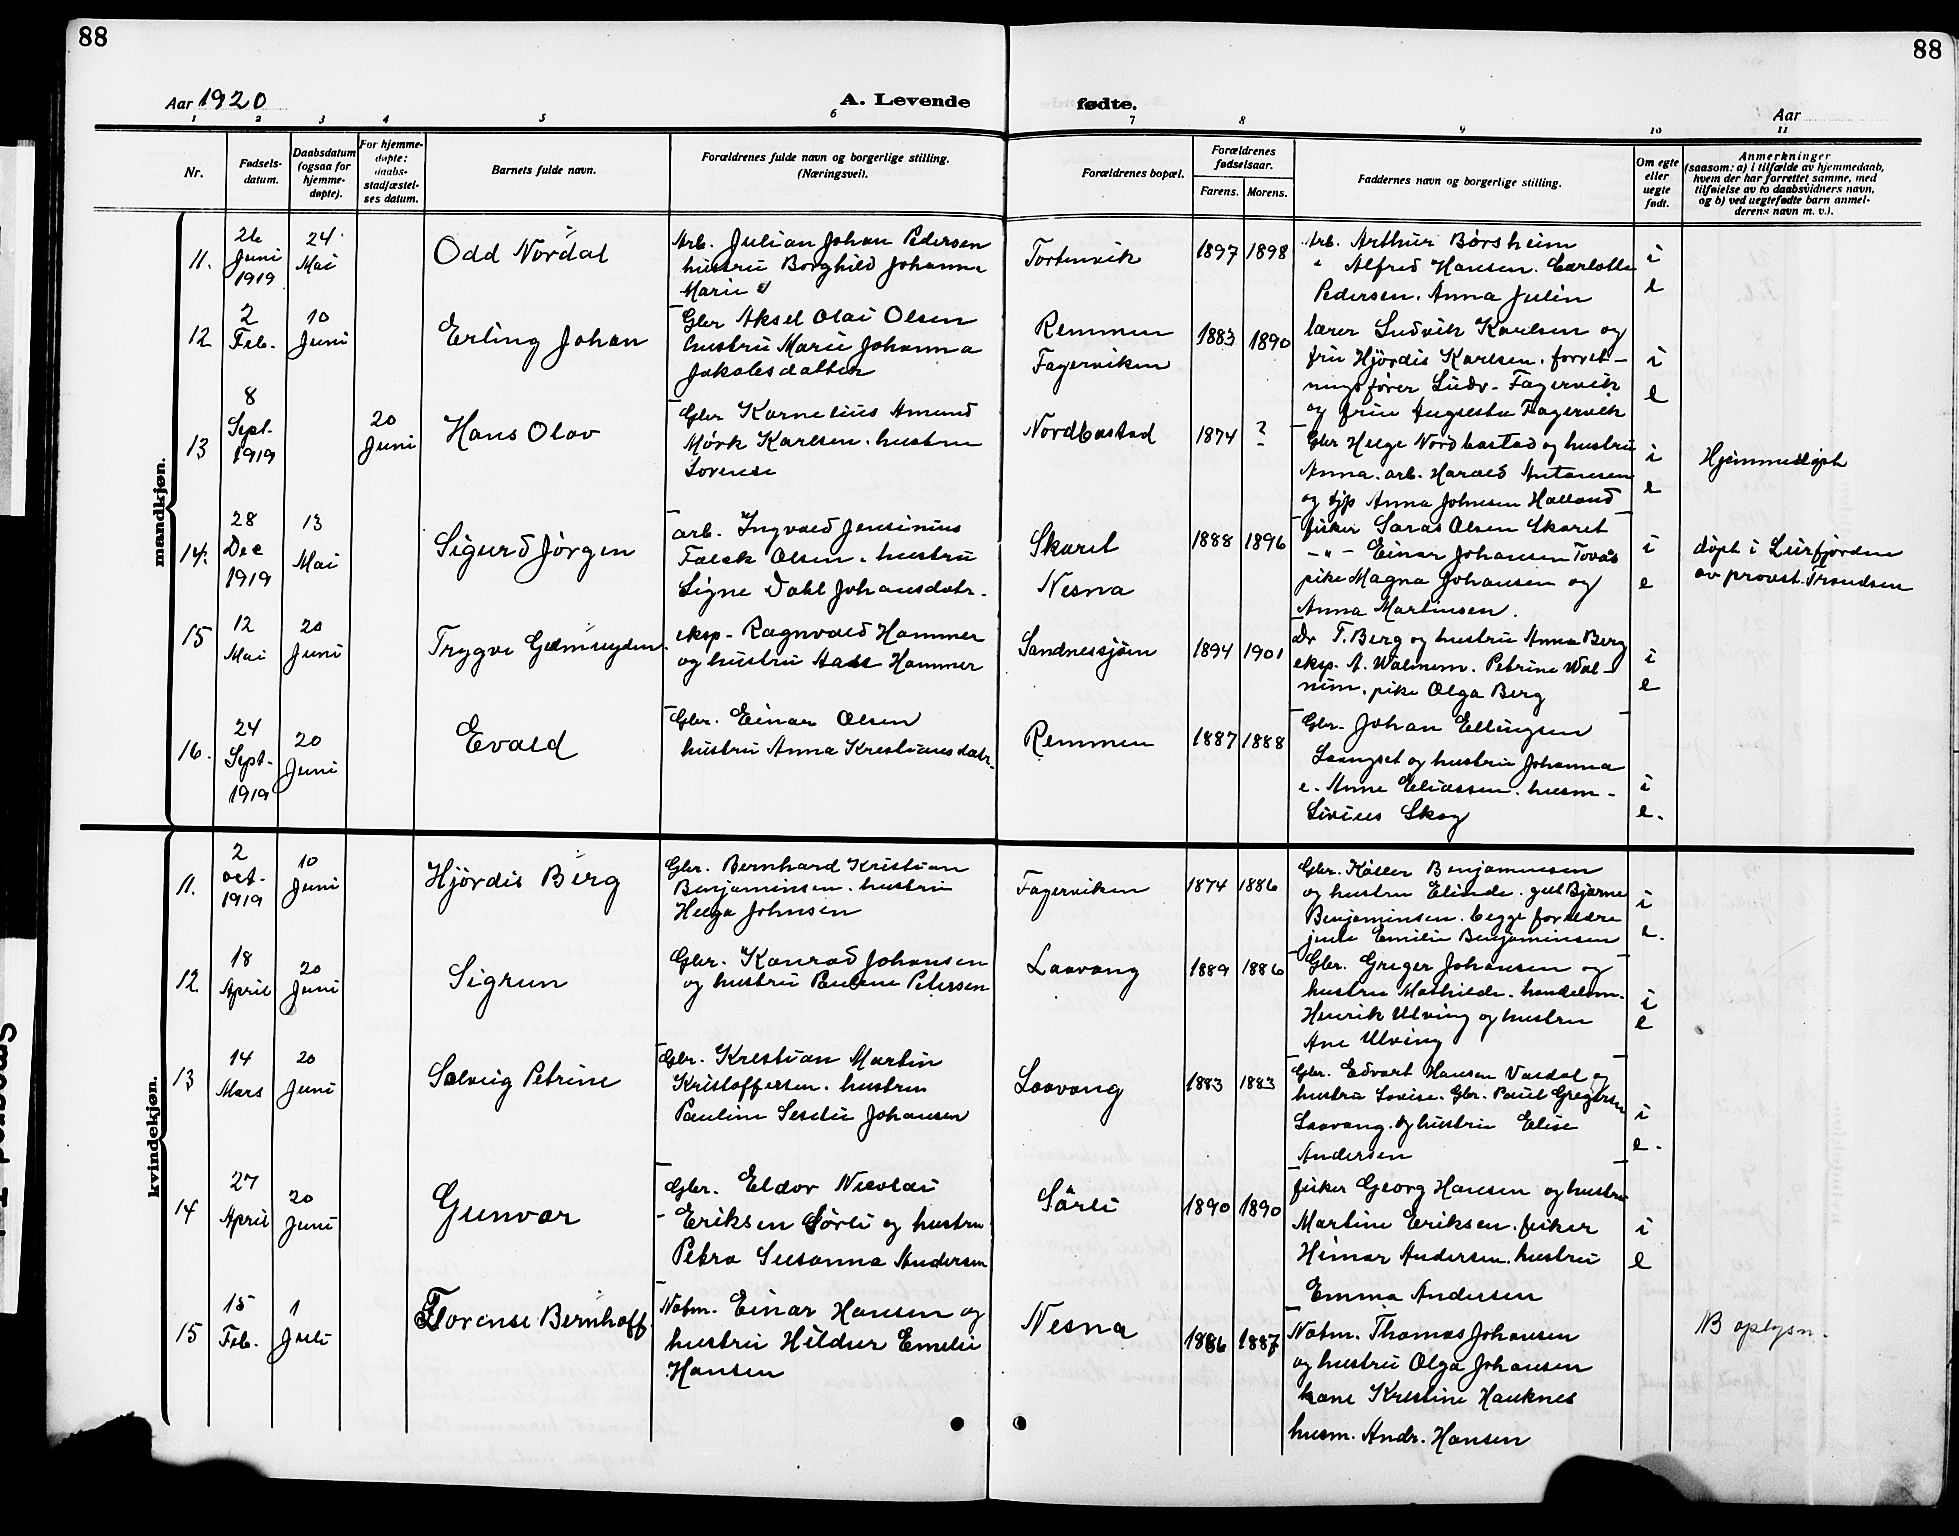 88
88
Aar 1920
A. Levende
fødte.
Aar
1 2 3 4 5 6 7 8 9 10 11
Nr.
Fødsels-
datum.
Daabsdatum
(ogsaa for
hjemme-
døpte).
For hjemme-
døpte:
daabs-
stadfæstel-
ses datum.
Barnets fulde navn.
Forældrenes fulde navn og borgerlige stilling.
(Næringsvei).
Forældrenes bopæl.
Forældrenes
fødselsaar.
Farens. Morens.
Faddernes navn og borgerlige stilling.
Om egte
eller
uegte
født.
Anmerkninger
(saasom: a) i tilfælde av hjemmedaab,
hvem der har forrettet samme, med
tilføielse av to daabsvidners navn,
og b) ved uegtefødte barn anmel-
derens navn m. v.).
mandkjøn.
11.
26
Juni
1919
24
Mai
Odd Nordal
Arb. Julian Johan Pedersen
hustru Borghild Johanna
Marie
Tortenvik
1897 1898
Arb. Arthur Børsheim
" Alfred Hansen. Carlotte
Pedersen. Anna Julin
i
e
12
2
Feb.
10
Juni
Erling Johan
Gbr Aksel Olai Olsen
hustru Marie Johanna
Jakobsdatter
Remmen
Fagerviken
1883 1890
lærer Ludvik Karlsen og
fru Hjördis Karlsen. forret-
ningsfører Ludv. Fagervik
og fru Augusta Fagervik
i
e
13
8
Sept.
1919
20
Juni
Hans Olav
Gbr Kornelius Amund
Mørk Karlsen. hustru
Lorense
Nordbastad
1874 ?
Gbr Helge Nordbastad og hustru
Anna. arb. Harald Antonsen
og tjp Anna Johnsen Halland
i
e
Hjemmedöpt
14.
28
Dec
1919
13
Mai
Sigurd Jörgen
arb. Ingvald Jensinius
Falck Olsen. hustru
Signe Dahl Johansdatr.
Skaret
Nesna
1888 1896
fisker Saras Olsen Skaret
-"- Einar Johansen Tovås
pike Magna Johansen og
Anna Martinsen.
i
e
döpt i Lurfjorden
av provst Trondsen
15
12
Mai
20
Juni
Trygve
eksp. Ragnvald Hammer
og hustru Aase Hammer
Sandnessjöen
1894 1901
Dr T. Berg og hustru Anna Berg
eksp. A. Walnum. Petrine Wal-
num. pike Olga Berg
i
e
16.
24
Sept.
1919
20
Juni
Evald
Gbr. Einar Olsen
hustru Anna Kristiansdatr.
Remmen
1887 1888
Gbr. Johan Ellingsen
Laangset og hustru Johanna
e. Anne Eliassen. husm-
Sivius Skog
i
e.
kvindekjøn.
11.
2
oct.
1919
10
Juni
Hjördis Berg
Gbr. Bernhard Kristian
Benjaminsen. hustru
Helga Johnsen
Fagerviken
1874 1886
Gbr. Köller Benjaminsen
og hustru Elinde. gut Bjarne
Benjaminsen. begge forældre
jente Emilie Benjaminsen
i
e.
12
18
April
20
Juni
Sigrun
Gbr. Konrad Johansen
og hustru Paulene Petersen
Laavang
1889 1886
Gbr. Greger Johansen og
hustru Mathilde. handelsm.
Henrik Ulving og hustru
Ane Ulving
i
e
13
14
Mars
20
Juni
Solveig Petrine
Gbr. Kristian Martin
Kristoffersen. hustru
Pauline Johansen
Laavang
1883 1883
Gbr. Edvart Hansen Vardal og
hustru Lovise. Gbr. Paul Gregersen
Laavang. og hustru Elise
Andersen
i
e.
14
27
April
20
Juni
Gunvor
Gbr. Eldor Nicolai
Eriksen Sörli og hustru
Petra Susanna Andersen
Sörli
1890 1890
fisker Georg Hansen og hustru
Martine Eriksen. fisker
Hilmar Andersen. hustru
Emma Andersen
i
e
15
15
Feb.
1
Juli
Torense Bernhoff.
Notm. Einar Hansen og
hustru Hildur Emelie
Hansen
Nesna
1886 1887
Notm. Thomas Johansen
og hustru Olga Johansen
kone Kristine Hauknes
husm. Andr. Hansen
NB oplysn.